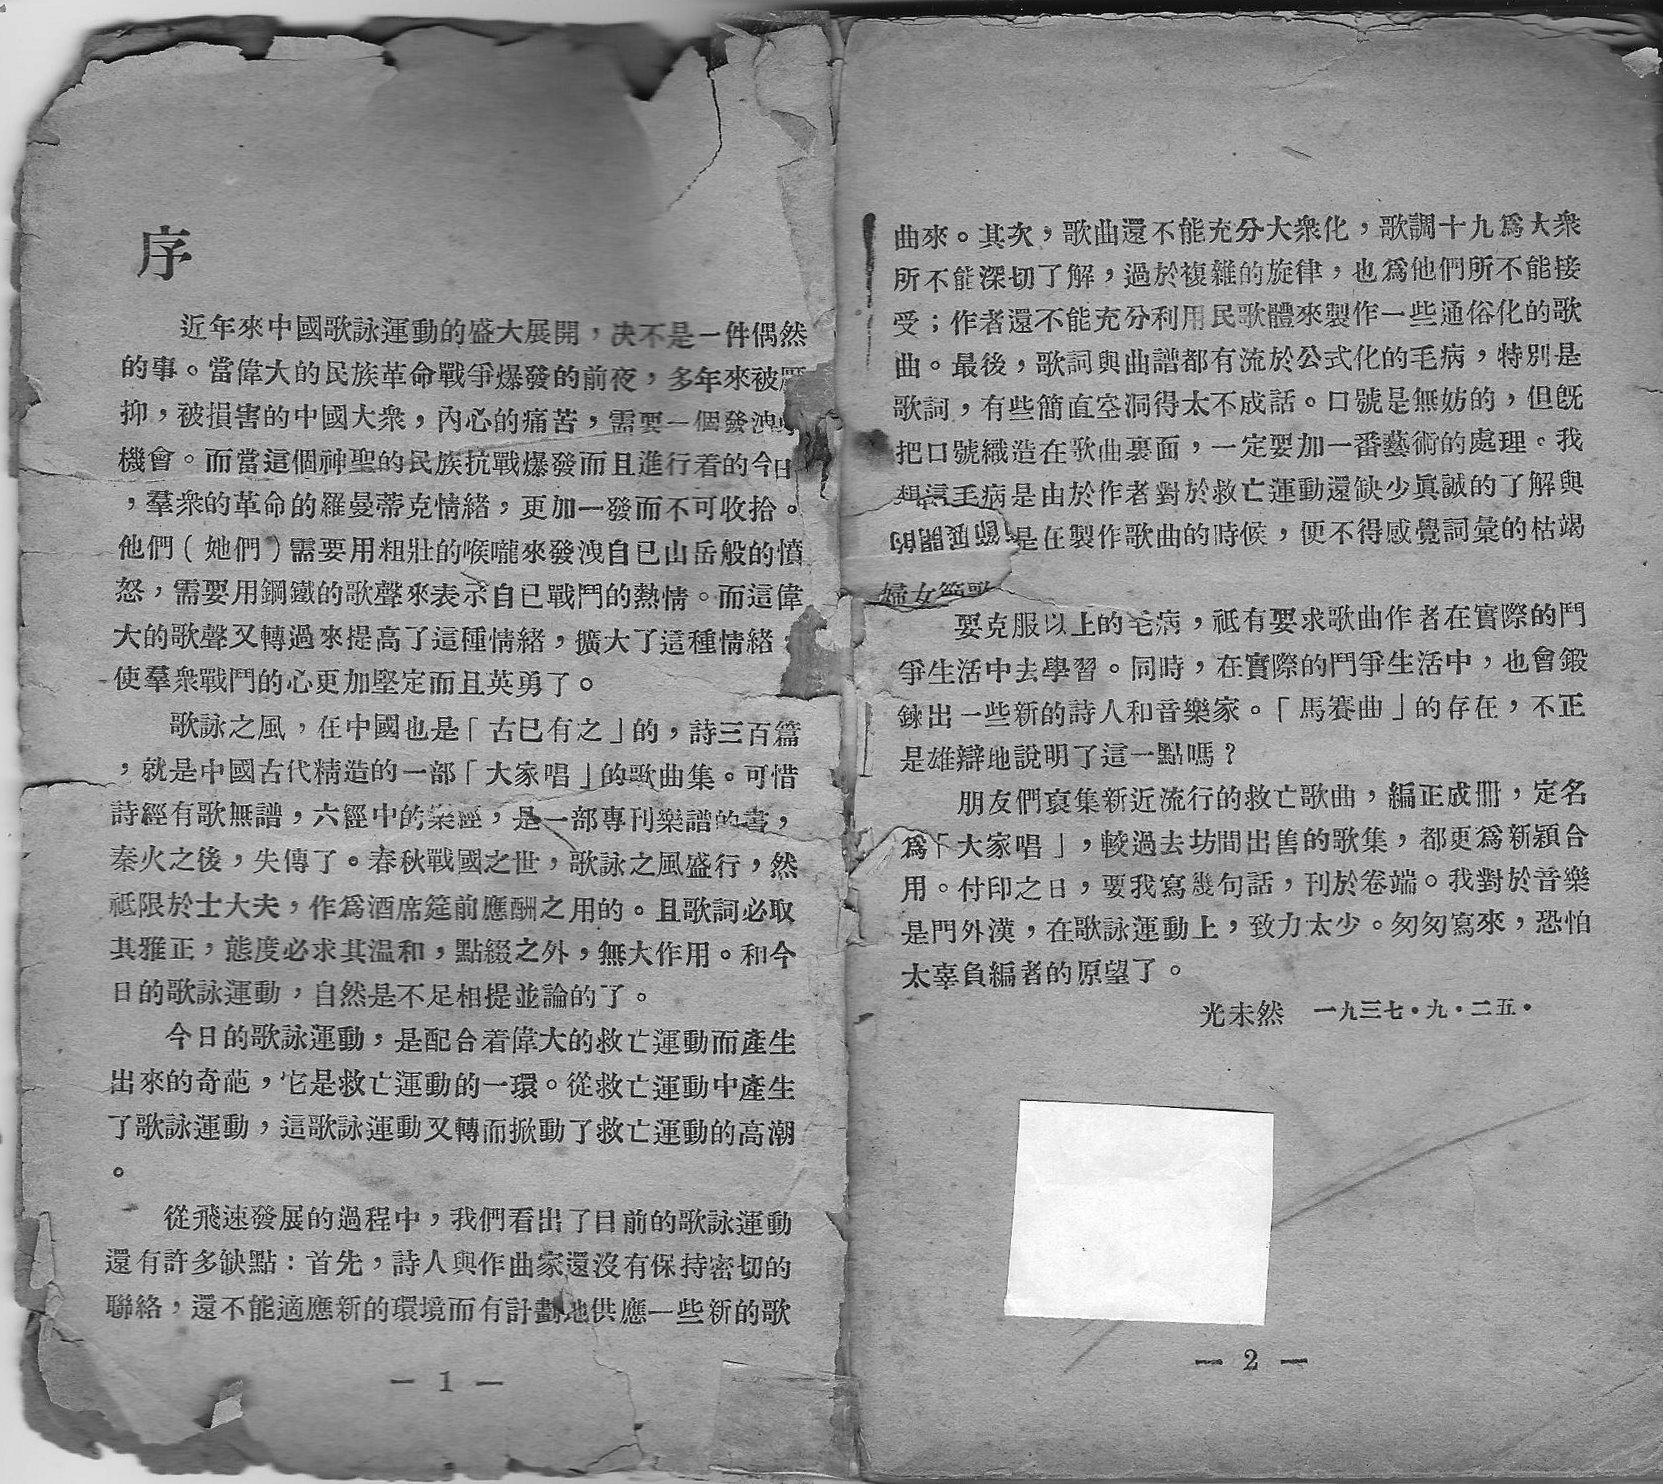 序
近年來中國歌詠運動的盛大展開，决不是一件偶然
的事。當偉大的民族革命戰爭爆發的前夜，多年來被壓
抑，被損害的中國大衆，內心的痛苦，需要一個發洩
機會。而當這個神聖的民族抗戰爆發而且進行着的今日
，羣衆的革命的羅曼蒂克情緒，更加一發而不可收拾。
他們（她們）需要用粗壯的喉嚨來發洩自已山岳般的憤
怒，需要用鋼鐵的歌聲來表示自已戰鬥的熱情。而這偉
大的歌聲又轉過來提高了這種情緒，擴大了這種情緒
使羣衆戰鬥的心更加堅定而且英勇了。
歌詠之風，在中國也是「古已有之」的，詩三百篇
，就是中國古代精造的一部「大家唱」的歌曲集。可惜
詩經有歌無譜，六經中的樂經，是一部專刊樂譜的書，
秦火之後，失傳了。春秋戰國之世，歌詠之風盛行，然
祗限於士大夫，作爲酒席筵前應酬之用的。且歌詞必取
其雅正，態度必求其温和，點綴之外，無大作用。和今
日的歌詠運動，自然是不足相提並論的了。
今日的歌詠運動，是配合着偉大的救亡運動而產生
出來的奇葩，它是救亡運動的一環。從救亡運動中產生
了歌詠運動，這歌詠運動又轉而掀動了救亡運動的高潮
。
從飛速發展的過程中，我們看出了目前的歌詠運動
還有許多缺點：首先，詩人與作曲家還沒有保持密切的
聯絡，還不能適應新的環境而有計劃地供應一些新的歌
— 1 —
曲來。其次，歌曲還不能充分大衆化，歌調十九爲大衆
所不能深切了解，過於複雜的旋律，也爲他們所不能接
受；作者還不能充分利用民歌體來製作一些通俗化的歌
曲。最後，歌詞與曲譜都有流於公式化的毛病，特別是
歌詞，有些簡直空洞得太不成話。口號是無妨的，但既
把口號織造在歌曲裏面，一定要加一番藝術的處理。我
想這毛病是由於作者對於救亡運動還缺少眞誠的了解與
是在製作歌曲的時候，便不得感覺詞彙的枯竭
婦女
要克服以上的毛病，祗有要求歌曲作者在實際的鬥
爭生活中去學習。同時，在實際的鬥爭生活中，也會鍛
鍊出一些新的詩人和音樂家。「馬賽曲」的存在，不正
是雄辯地說明了這一點嗎？
朋友們裒集新近流行的救亡歌曲，編正成冊，定名
爲「大家唱」，較過去坊間出售的歌集，都更爲新穎合
用。付印之日，要我寫幾句話，刊於卷端。我對於音樂
是門外漢，在歌詠運動上，致力太少。匆匆寫來，恐怕
太辜負編者的原望了。
光未然　一九三七・九・二五・
— 2 —